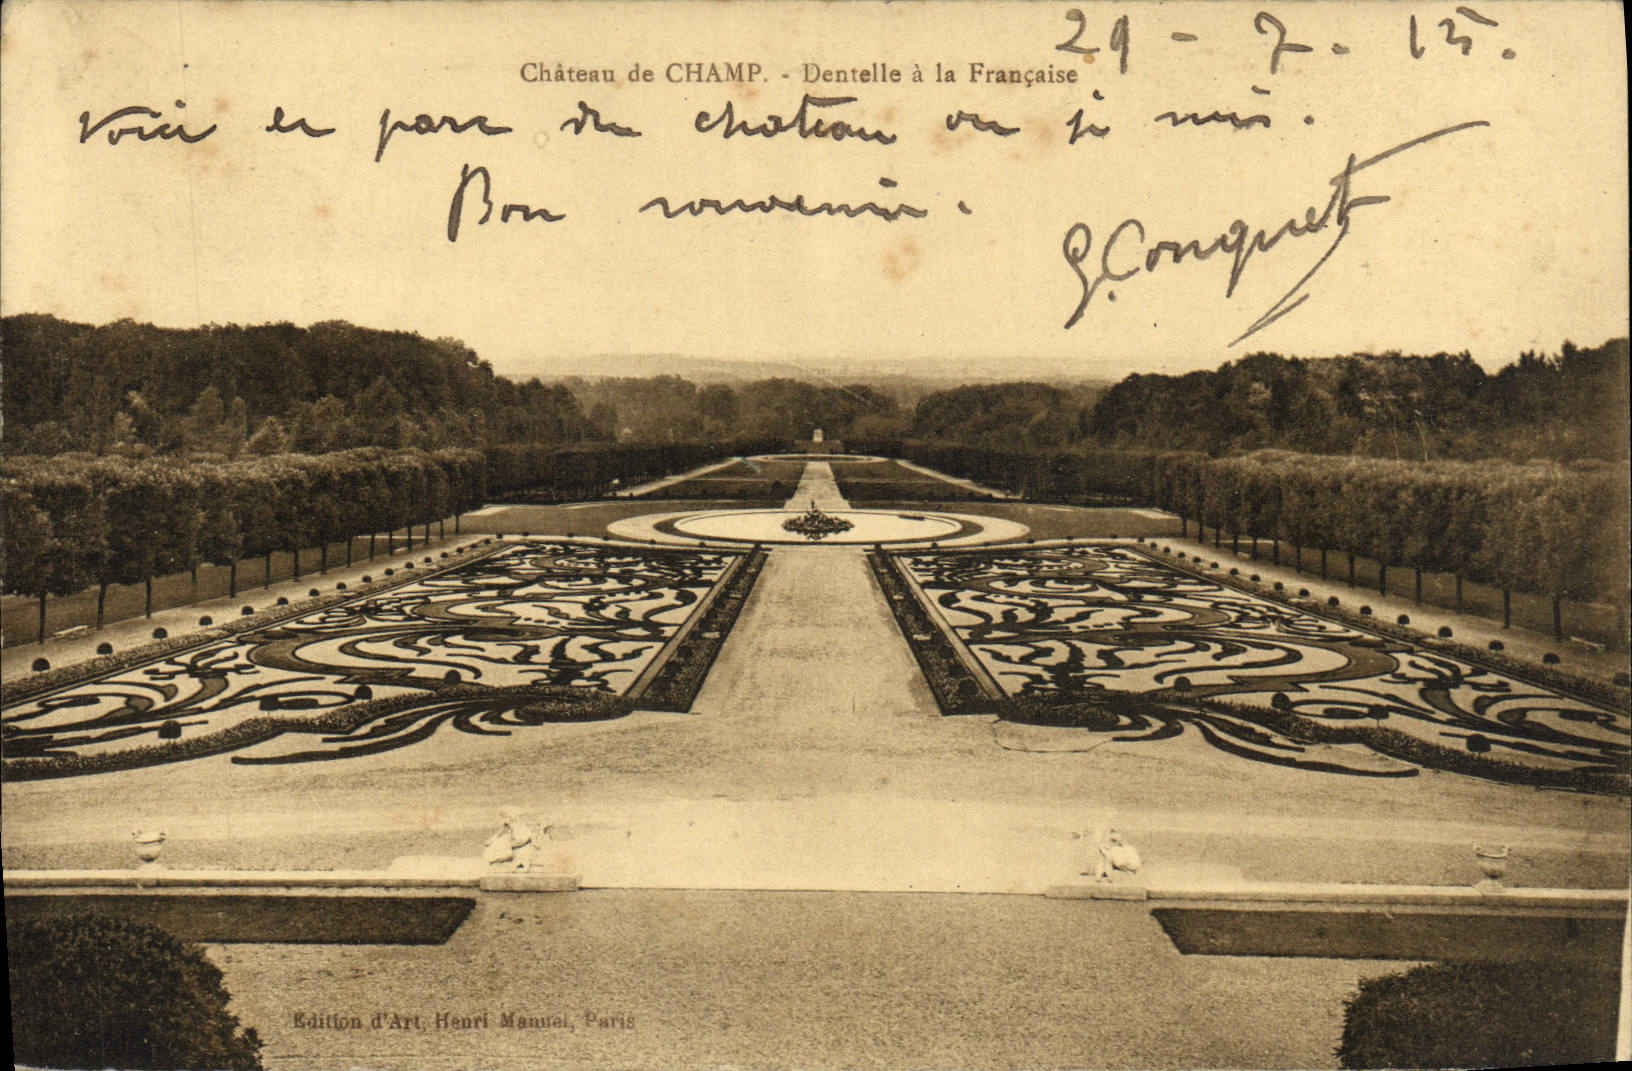 29 - 7 - 15.
Château de CHAMP. - Dentelle à la Française
Voici le parc du chateau ou je suis.
Bon souvenir.
G. Conquet
Edition d'Art, Henri Manuel, Paris